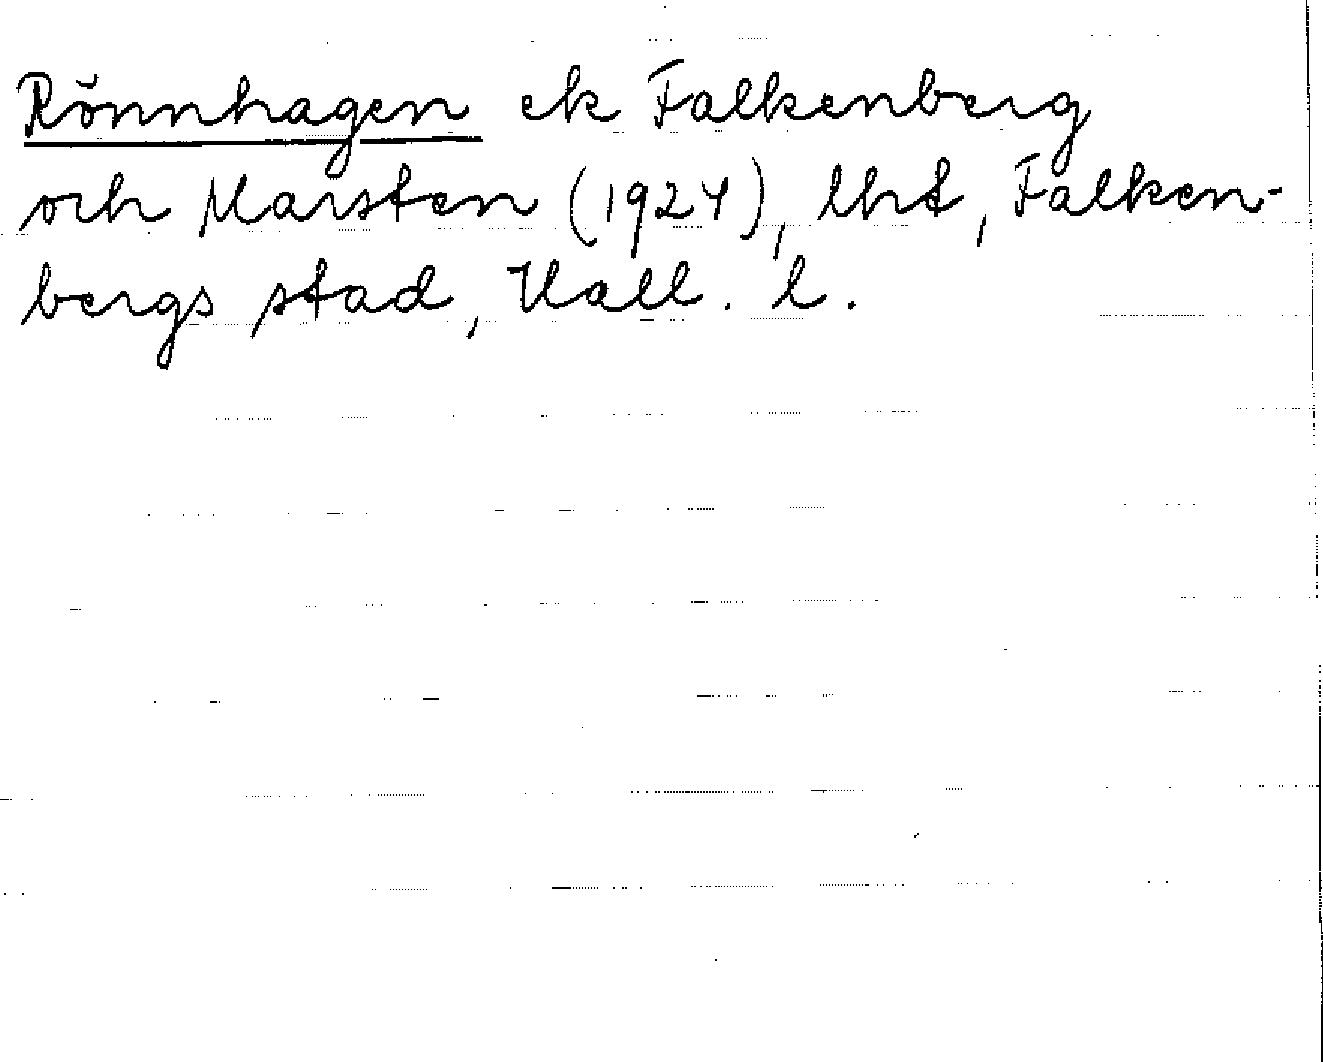 Rönnhagen ek Falkenberg
och Marsten (1924), lht, Falken-
bergs stad, Hall. l.